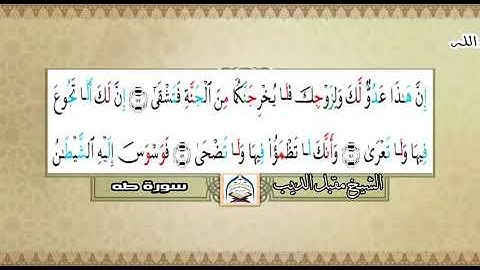 الله
إِنَّ هَٰذَا عَدُوٌّ لَّكَ وَلِزَوْجِكَ فَلَا يُخْرِجَنَّكُمَا مِنَ الْجَنَّةِ فَتَشْقَىٰ ۝ إِنَّ لَكَ أَلَّا تَجُوعَ
فِيهَا وَلَا تَعْرَىٰ ۝ وَأَنَّكَ لَا تَظْمَؤُا فِيهَا وَلَا تَضْحَىٰ ۝ فَوَسْوَسَ إِلَيْهِ الشَّيْطَٰنُ
الشيخ مقبل الديب سورة طه